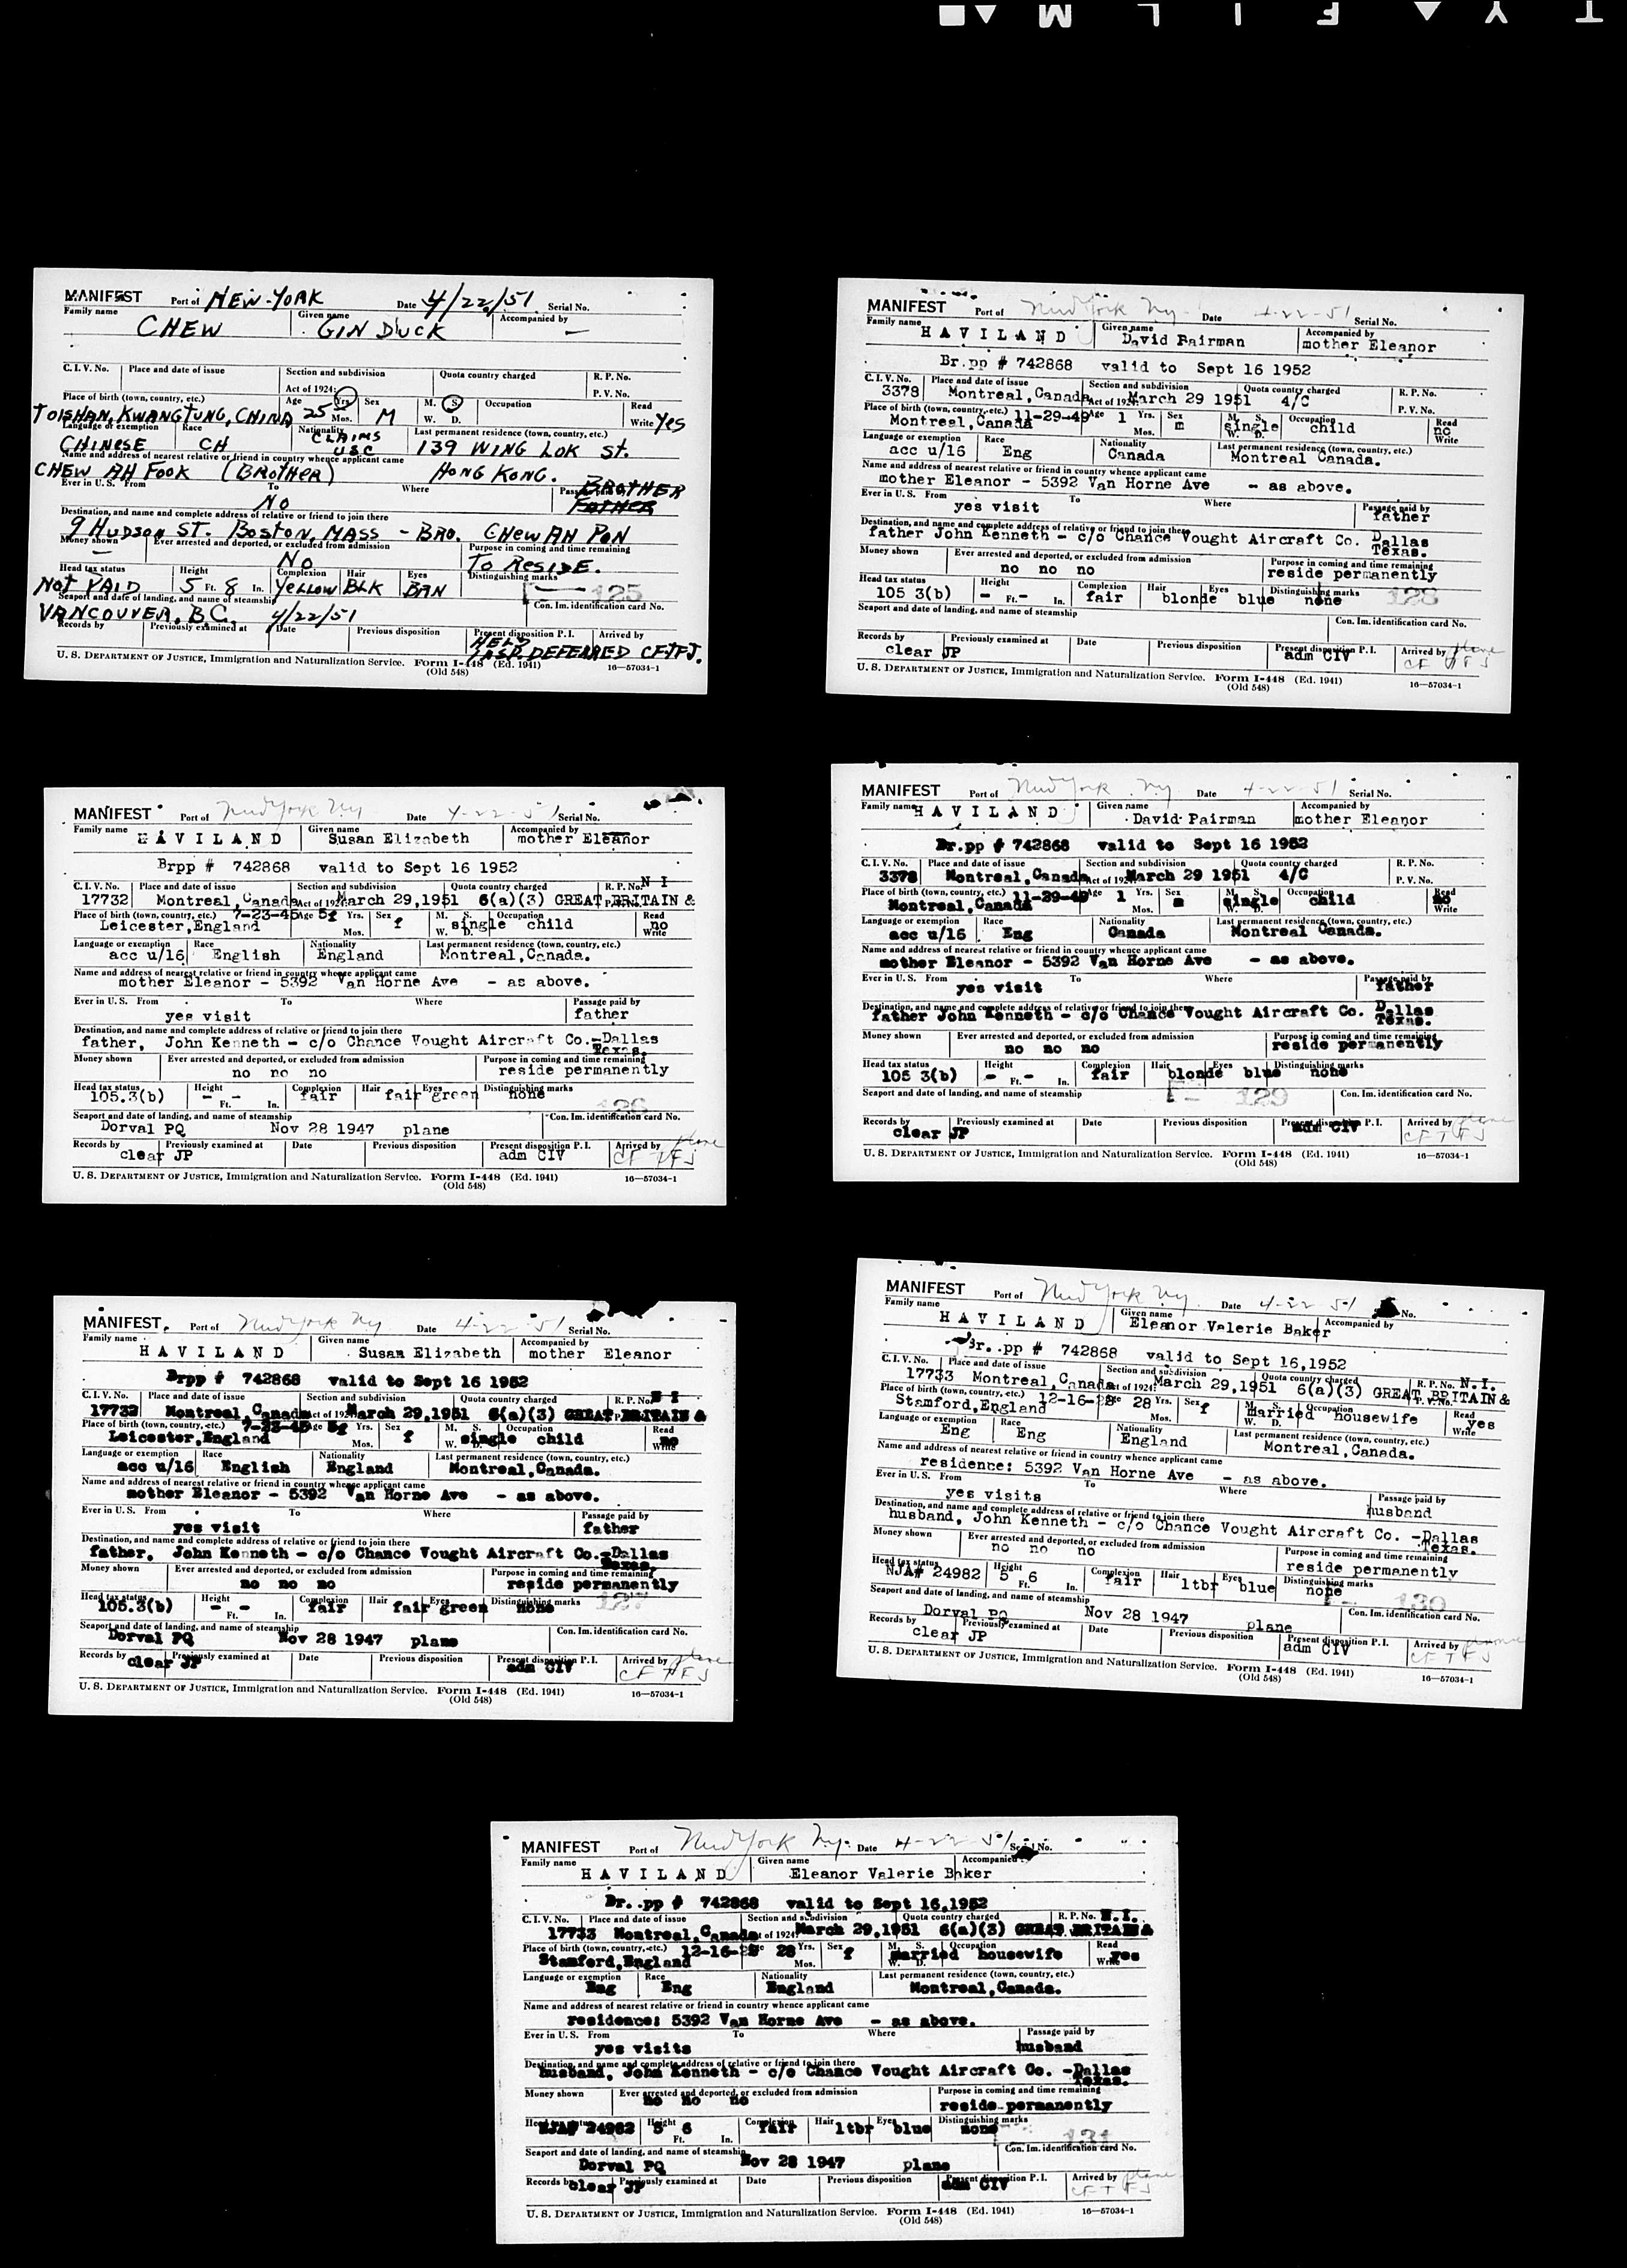 MANIFEST Port of NEW-YORK Date 4/22/51 Serial No.
Family name CHEW Given name GIN DUCK Accompanied by —
C. I. V. No. Place and date of issue Section and subdivision Quota country charged R. P. No.
Act of 1924: P. V. No.
Place of birth (town, country, etc.) Age Yrs. Sex M. S. Occupation Read
TOISHAN, KWANGTUNG, CHINA 25 Mos. M W. D. Write Yes
Language or exemption Race Nationality Last permanent residence (town, country, etc.)
CHINESE CH CLAIMS USC 139 WING LOK St.
Name and address of nearest relative or friend in country whence applicant came
CHEW AH FOOK (BROTHER) HONG KONG.
Ever in U. S. From To Where Passage paid by BROTHER
NO FATHER
Destination, and name and complete address of relative or friend to join there
9 HUDSON ST. BOSTON, MASS - BRO. CHEW AH PON
Money shown Ever arrested and deported, or excluded from admission Purpose in coming and time remaining
— No To RESIDE.
Head tax status Height Complexion Hair Eyes Distinguishing marks
NOT PAID 5 Ft. 8 In. YELLOW BLK BRN 125
Seaport and date of landing, and name of steamship Con. Im. identification card No.
VANCOUVER, B.C. 4/22/51
Records by Previously examined at Date Previous disposition Present disposition P. I. Arrived by
HELD
INSP. DEFERRED CF-TFJ.
U. S. DEPARTMENT OF JUSTICE, Immigration and Naturalization Service. Form I-448 (Ed. 1941) 16—57034-1
(Old 548)
MANIFEST Port of New York Ny. Date 4-22-51 Serial No.
Family name HAVILAND Given name David Pairman Accompanied by mother Eleanor
Br.pp # 742868 valid to Sept 16 1952
C. I. V. No. Place and date of issue Section and subdivision Quota country charged R. P. No.
3378 Montreal,Canada Act of 1924: March 29 1951 4/C P. V. No.
Place of birth (town, country, etc.) 11-29-49 Age 1 Yrs. Sex M. S. Occupation Read
Montreal,Canada Mos. m single W. D. child no Write
Language or exemption Race Nationality Last permanent residence (town, country, etc.)
acc u/16 Eng Canada Montreal Canada.
Name and address of nearest relative or friend in country whence applicant came
mother Eleanor - 5392 Van Horne Ave - as above.
Ever in U. S. From To Where Passage paid by
yes visit father
Destination, and name and complete address of relative or friend to join there
father John Kenneth - c/o Chance Vought Aircraft Co. Dallas Texas.
Money shown Ever arrested and deported, or excluded from admission Purpose in coming and time remaining
no no no reside permanently
Head tax status Height Complexion Hair Eyes Distinguishing marks
105 3(b) - Ft. - In. fair blonde blue none 128
Seaport and date of landing, and name of steamship Con. Im. identification card No.
Records by Previously examined at Date Previous disposition Present disposition P. I. Arrived by plane
clear JP adm CIV CF TFJ
U. S. DEPARTMENT OF JUSTICE, Immigration and Naturalization Service. Form I-448 (Ed. 1941) 16—57034-1
(Old 548)
MANIFEST Port of New York Ny Date 4-22-51 Serial No.
Family name HAVILAND Given name Susan Elizabeth Accompanied by mother Eleanor
Brpp # 742868 valid to Sept 16 1952
C. I. V. No. Place and date of issue Section and subdivision Quota country charged R. P. No. N I
17732 Montreal,Canada Act of 1924: March 29,1951 6(a)(3) GREAT BRITAIN &
Place of birth (town, country, etc.) 7-23-45 Age 5½ Yrs. Sex M. S. Occupation Read
Leicester,England Mos. f single W. D. child no Write
Language or exemption Race Nationality Last permanent residence (town, country, etc.)
acc u/16 English England Montreal,Canada.
Name and address of nearest relative or friend in country whence applicant came
mother Eleanor - 5392 Van Horne Ave - as above.
Ever in U. S. From To Where Passage paid by
yes visit father
Destination, and name and complete address of relative or friend to join there
father, John Kenneth - c/o Chance Vought Aircraft Co.-Dallas Texas.
Money shown Ever arrested and deported, or excluded from admission Purpose in coming and time remaining
no no no reside permanently
Head tax status Height Complexion Hair Eyes Distinguishing marks
105.3(b) - Ft. - In. fair fair green none 126
Seaport and date of landing, and name of steamship Con. Im. identification card No.
Dorval PQ Nov 28 1947 plane
Records by Previously examined at Date Previous disposition Present disposition P. I. Arrived by plane
clear JP adm CIV CF TFJ
U. S. DEPARTMENT OF JUSTICE, Immigration and Naturalization Service. Form I-448 (Ed. 1941) 16—57034-1
(Old 548)
MANIFEST Port of New York Ny. Date 4-22-51 Serial No.
Family name HAVILAND Given name David Pairman Accompanied by mother Eleanor
Br.pp # 742868 valid to Sept 16 1952
C. I. V. No. Place and date of issue Section and subdivision Quota country charged R. P. No.
3378 Montreal,Canada Act of 1924: March 29 1951 4/C P. V. No.
Place of birth (town, country, etc.) 11-29-49 Age 1 Yrs. Sex M. S. Occupation Read
Montreal,Canada Mos. m single W. D. child no Write
Language or exemption Race Nationality Last permanent residence (town, country, etc.)
acc u/16 Eng Canada Montreal Canada.
Name and address of nearest relative or friend in country whence applicant came
mother Eleanor - 5392 Van Horne Ave - as above.
Ever in U. S. From To Where Passage paid by
yes visit father
Destination, and name and complete address of relative or friend to join there
father John Kenneth - c/o Chance Vought Aircraft Co. Dallas Texas.
Money shown Ever arrested and deported, or excluded from admission Purpose in coming and time remaining
no no no reside permanently
Head tax status Height Complexion Hair Eyes Distinguishing marks
105 3(b) - Ft. - In. fair blonde blue none
Seaport and date of landing, and name of steamship 129 Con. Im. identification card No.
Records by Previously examined at Date Previous disposition Present disposition P. I. Arrived by plane
clear JP adm CIV CF TFJ
U. S. DEPARTMENT OF JUSTICE, Immigration and Naturalization Service. Form I-448 (Ed. 1941) 16—57034-1
(Old 548)
MANIFEST Port of New York Ny Date 4-22-51 Serial No.
Family name HAVILAND Given name Susan Elizabeth Accompanied by mother Eleanor
Brpp # 742868 valid to Sept 16 1952
C. I. V. No. Place and date of issue Section and subdivision Quota country charged R. P. No. N I
17732 Montreal Canada Act of 1924: March 29,1951 6(a)(3) GREAT BRITAIN &
Place of birth (town, country, etc.) 7-23-45 Age 5½ Yrs. Sex M. S. Occupation Read
Leicester,England Mos. f single W. D. child no Write
Language or exemption Race Nationality Last permanent residence (town, country, etc.)
acc u/16 English England Montreal,Canada.
Name and address of nearest relative or friend in country whence applicant came
mother Eleanor - 5392 Van Horne Ave - as above.
Ever in U. S. From To Where Passage paid by
yes visit father
Destination, and name and complete address of relative or friend to join there
father, John Kenneth - c/o Chance Vought Aircraft Co.-Dallas Texas.
Money shown Ever arrested and deported, or excluded from admission Purpose in coming and time remaining
no no no reside permanently
Head tax status Height Complexion Hair Eyes Distinguishing marks
105.3(b) - Ft. - In. fair fair green none 127
Seaport and date of landing, and name of steamship Con. Im. identification card No.
Dorval PQ Nov 28 1947 plane
Records by Previously examined at Date Previous disposition Present disposition P. I. Arrived by plane
clear JP adm CIV CF TFJ
U. S. DEPARTMENT OF JUSTICE, Immigration and Naturalization Service. Form I-448 (Ed. 1941) 16—57034-1
(Old 548)
MANIFEST Port of New York Ny. Date 4-22 51 No.
Family name HAVILAND Given name Eleanor Valerie Baker Accompanied by
Br..pp # 742868 valid to Sept 16,1952
C. I. V. No. Place and date of issue Section and subdivision Quota country charged R. P. No. N.I.
17733 Montreal,Canada Act of 1924: March 29,1951 6(a)(3) GREAT BRITAIN & P. V. No.
Place of birth (town, country, etc.) 12-16-22 Age 28 Yrs. Sex M. S. Occupation Read
Stamford,England Mos. f Married W. D. housewife yes Write
Language or exemption Race Nationality Last permanent residence (town, country, etc.)
Eng Eng England Montreal,Canada.
Name and address of nearest relative or friend in country whence applicant came
residence: 5392 Van Horne Ave - as above.
Ever in U. S. From To Where Passage paid by
yes visits husband
Destination, and name and complete address of relative or friend to join there
husband, John Kenneth - c/o Chance Vought Aircraft Co. -Dallas Texas.
Money shown Ever arrested and deported, or excluded from admission Purpose in coming and time remaining
no no no reside permanently
Head tax status Height Complexion Hair Eyes Distinguishing marks
NJA# 24982 5 Ft. 6 In. fair ltbr blue none 130
Seaport and date of landing, and name of steamship Con. Im. identification card No.
Dorval PQ Nov 28 1947 plane
Records by Previously examined at Date Previous disposition Present disposition P. I. Arrived by plane
clear JP adm CIV CF TFJ
U. S. DEPARTMENT OF JUSTICE, Immigration and Naturalization Service. Form I-448 (Ed. 1941) 16—57034-1
(Old 548)
MANIFEST Port of New York Ny. Date 4-22-51 Serial No.
Family name HAVILAND Given name Eleanor Valerie Baker Accompanied
Br..pp # 742868 valid to Sept 16,1952
C. I. V. No. Place and date of issue Section and subdivision Quota country charged R. P. No. N.I.
17733 Montreal,Canada Act of 1924: March 29,1951 6(a)(3) GREAT BRITAIN &
Place of birth (town, country, etc.) 12-16-22 Age 28 Yrs. Sex M. S. Occupation Read
Stamford,England Mos. f Married W. D. housewife yes Write
Language or exemption Race Nationality Last permanent residence (town, country, etc.)
Eng Eng England Montreal,Canada.
Name and address of nearest relative or friend in country whence applicant came
residence: 5392 Van Horne Ave - as above.
Ever in U. S. From To Where Passage paid by
yes visits husband
Destination, and name and complete address of relative or friend to join there
husband, John Kenneth - c/o Chance Vought Aircraft Co. -Dallas Texas.
Money shown Ever arrested and deported, or excluded from admission Purpose in coming and time remaining
no no no reside permanently
Head tax status Height Complexion Hair Eyes Distinguishing marks
NJA# 24982 5 Ft. 6 In. fair ltbr blue none 131
Seaport and date of landing, and name of steamship Con. Im. identification card No.
Dorval PQ Nov 28 1947 plane
Records by Previously examined at Date Previous disposition Present disposition P. I. Arrived by plane
clear JP adm CIV CF TFJ
U. S. DEPARTMENT OF JUSTICE, Immigration and Naturalization Service. Form I-448 (Ed. 1941) 16—57034-1
(Old 548)